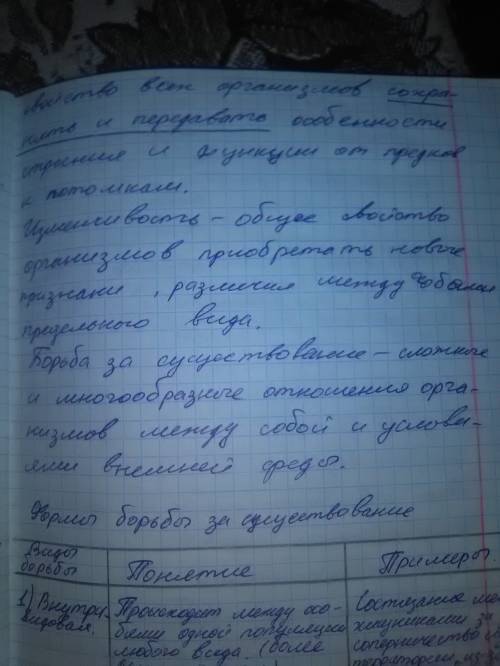 свойство всех организмов сохра-
нять и передавать особенности
строения и функции от предков
к потомкам.
Изменчивость - общее свойство
организмов приобретать новые
признаки, различия между
предельного вида.
Борьба за существование - сложные
и многообразные отношения орга-
низмов между собой и услови-
ями внешней среды.
Формы борьбы за существование
Виды борьбы
Понятие
Примеры.
1) Внутри-
видовая.
Происходит между осо-
бями одной популяции
любого вида. (более
Состязание
хищниками за
соперничество
территории,